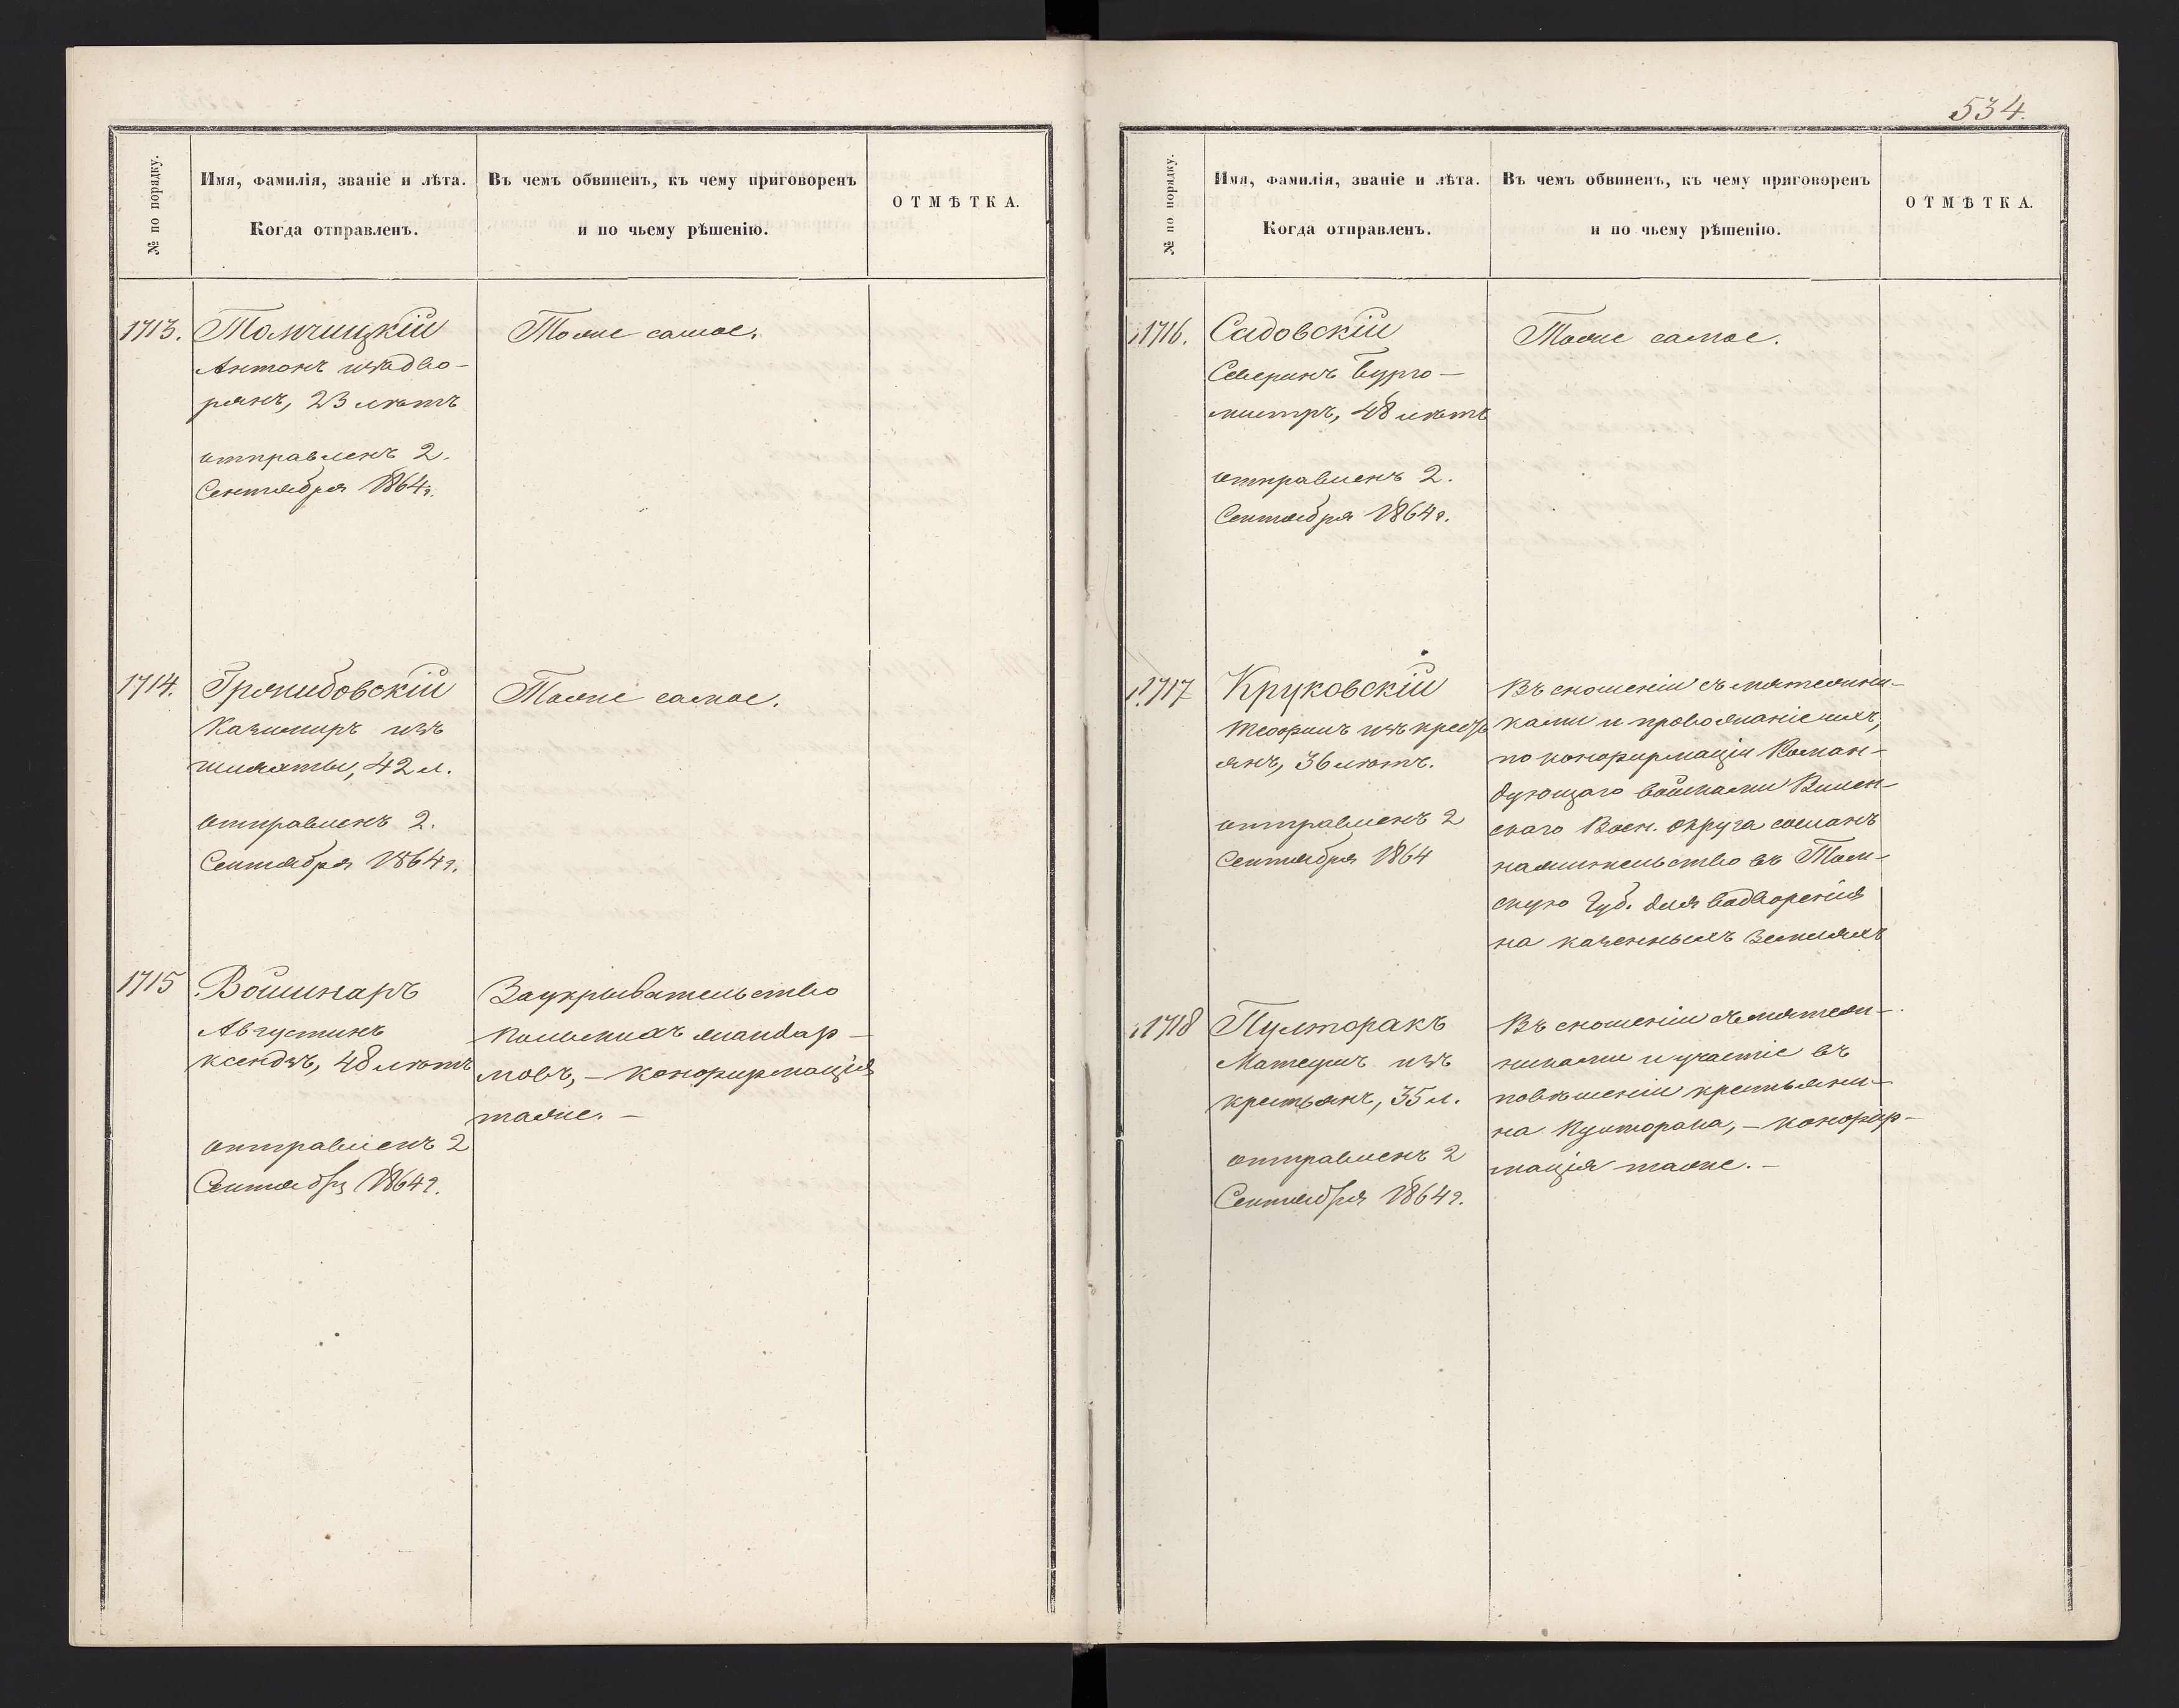 534.
№ по порядку.
Имя, фамилія, званіе и лѣта.
Когда отправленъ.
Въ чемъ обвиненъ, къ чему приговоренъ
и по чьему рѣшенію.
ОТМѢТКА.
1713.
Томчицкій
Антонъ изъ дво-
рянъ, 23 лѣтъ
отправленъ 2.
Сентября 1864 г.
Тоже самое.
1714.
Казимиръ изъ
шляхты, 42 л.
отправленъ 2.
Сентября 1864 г.
Тоже самое.
1715
Войшнаръ
Августинъ
ксендзъ, 48 лѣтъ
отправленъ 2
Сентября 1864 г.
За укрывательство
польскихъ жандар-
мовъ, – конфирмація
таже. –
№ по порядку.
Имя, фамилія, званіе и лѣта.
Когда отправленъ.
Въ чемъ обвиненъ, къ чему приговоренъ
и по чьему рѣшенію.
ОТМѢТКА.
1716.
Садовскій
Северинъ бурго-
мистръ, 48 лѣтъ
отправленъ 2.
Сентября 1864 г.
Тоже самое.
1717
Круковскій
Теофилъ изъ кресть
янъ, 36 лѣтъ.
отправленъ 2
Сентября 1864
Въ сношеніи съ мятежни-
ками и провожаніе ихъ,
по конфирмаціи Коман-
дующаго войсками Вилен-
скаго Воен. округа сосланъ
на жительство въ Том-
скую Губ. для водворенія
на казенныхъ земляхъ
1718
Пулторакъ
Матеушъ изъ
крестьянъ, 35 л.
отправленъ 2
Сентября 1864 г.
Въ сношеніи съ мятеж-
никами и участіе въ
повѣшеніи крестьяни-
на Пулторака, – конфир-
мація таже. –